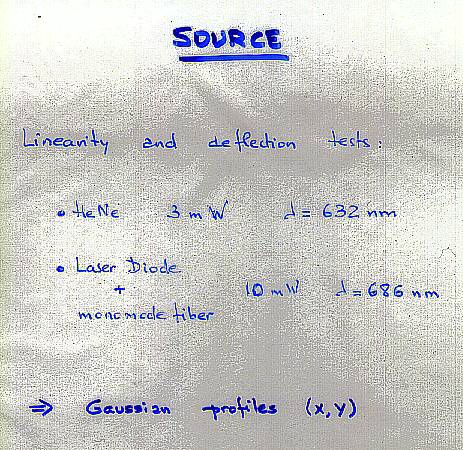 SOURCE
Linearity and deflection tests:
• HeNe 3 mW λ = 632 nm
• Laser Diode
+
monomode fiber
10 mW λ = 686 nm
⇒ Gaussian profiles (x,y)